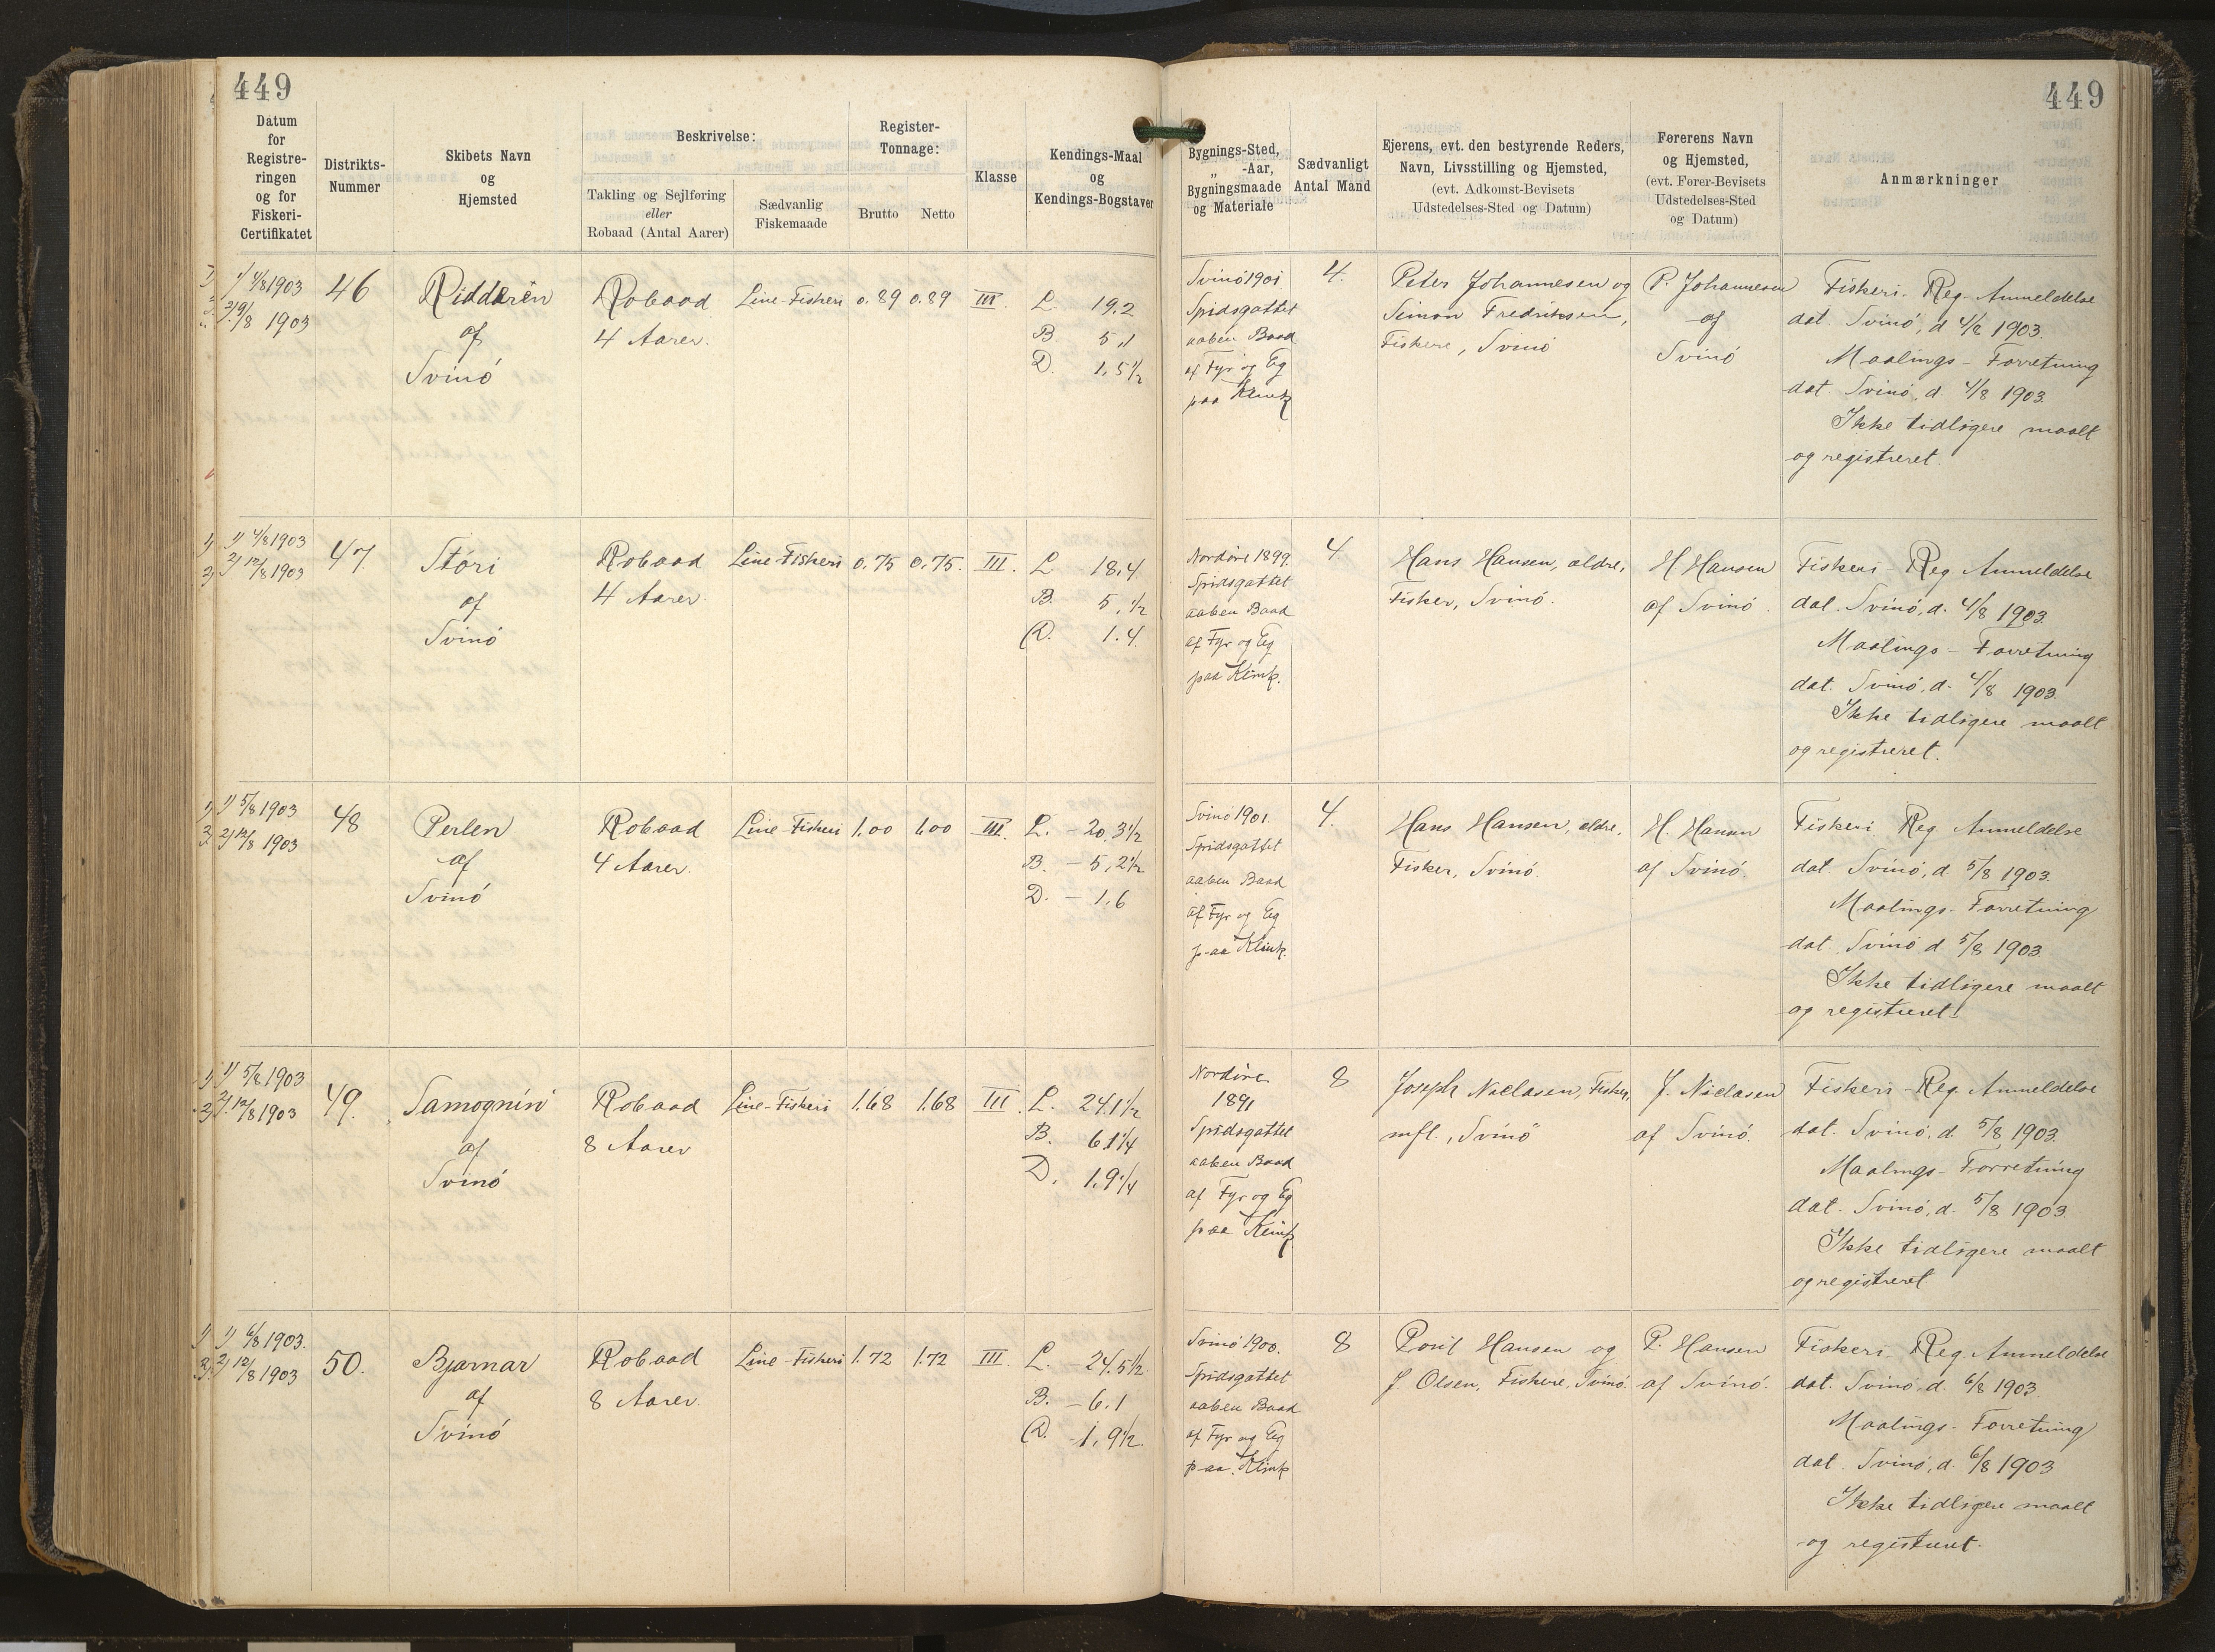 449
449
Datum
for
Registre-
ringen
og for
Fiskeri-
Certifikatet
Distrikts-
Nummer
Skibets Navn
og
Hjemsted
Beskrivelse:
Takling og Sejlføring
eller
Robaad (Antal Aarer)
Sædvanlig
Fiskemaade
Register-
Tonnage:
Brutto
Netto
Klasse
Kendings-Maal
og
Kendings-Bogstaver
Bygnings-Sted,
„ -Aar,
Bygningsmaade
og Materiale
Sædvanligt
Antal Mand
Ejerens, evt. den bestyrende Reders,
Navn, Livsstilling og Hjemsted,
(evt. Adkomst-Bevisets
Udstedelses-Sted og Datum)
Førerens Navn
og Hjemsted,
(evt. Fører-Bevisets
Udstedelses-Sted
og Datum)
Anmærkninger
1) 4/8 1903
2) 19/8 1903
46
Ridderen
af
Svinö
Robaad
4 Aarer.
Line-Fiskeri
0.89
0.89
III.
L. 19.2
B 5,1
D. 1,5½
Svinö 1901
Spidsgattet
aaben Baad
af Fyr og Eg
paa Klink
4.
Peter Johannesen og
Simon Fredriksen,
Fiskere, Svinö
P. Johannesen
af
Svinö
Fiskeri-Reg. Anmeldelse
dat. Svinö, d 4/8 1903.
Maalings-Forretning
dat. Svinö, d. 4/8 1903.
Ikke tidligere maalt
og registreret.
1) 4/8 1903
2) 12/8 1903
47.
Störi
af
Svinö
Robaad
4 Aarer
Line-Fiskeri
0.75
0.75.
III.
L 18.4
B. 5,½
D. 1.4.
Nordöre 1899.
Spidsgattet
aaben Baad
af Fyr og Eg
paa Klink.
4
Hans Hansen, ældre,
Fisker, Svinö.
H Hansen
af Svinö.
Fiskeri-Reg. Anmeldelse
dat. Svinö, d. 4/8 1903.
Maalings-Forretning
dat. Svinö, d. 4/8 1903.
Ikke tidligere maalt
og registreret.
1) 5/8 1903
2) 12/8 1903
48
Perlen
af
Svinö
Robaad
4 Aarer.
Line-Fiskeri
1.00
1.00
III.
L. - 20.3½
B. - 5,2½
D. - 1,6
Svinö 1901.
Spidsgattet
aaben Baad
af Fyr og Eg
paa Klink.
4.
Hans Hansen, ældre,
Fisker, Svinö.
H. Hansen
af Svinö.
Fiskeri Reg. Anmeldelse
dat. Svinö, d 5/8 1903.
Maalings-Forretning
dat. Svinö d. 5/8 1903.
Ikke tidligere maalt
og registreret.
1) 5/8 1903
2) 12/8 1903
49.
Samognin
af
Svinö
Robaad
8 Aarer
Line-Fiskeri
1.68
1.68
III.
L. 24.1½
B. 6.1¼
D. 1,9¼
Nordöre
1891
Spidsgattet
aaben Baad
af Fyr og Eg
paa Klink.
8
Joseph Niclasen, Fisker,
mfl., Svinö
J. Niclasen
af Svinö.
Fiskeri-Reg. Anmeldelse
dat. Svinö, d. 5/8 1903.
Maalings-Forretning
dat. Svinö, d. 5/8 1903.
Ikke tidligere maalt
og registreret
1) 6/8 1903.
2) 12/8 1903
50.
Bjarnar
af
Svinö
Robaad
8 Aarer.
Line-Fiskeri
1.72
1.72
III.
L. - 24.5½
B. - 6.1
D. - 1,9½.
Svinö 1900.
Spidsgattet
aaben Baad
af Fyr og Eg
paa Klink
8
Poul Hansen og
J. Olsen, Fiskere, Svinö.
P. Hansen
af Svinö.
Fiskeri-Reg. Anmeldelse
dat. Svinö, d. 6/8 1903.
Maalings-Forretning
dat. Svinö, d. 6/8 1903
Ikke tidligere maalt
og registreret.